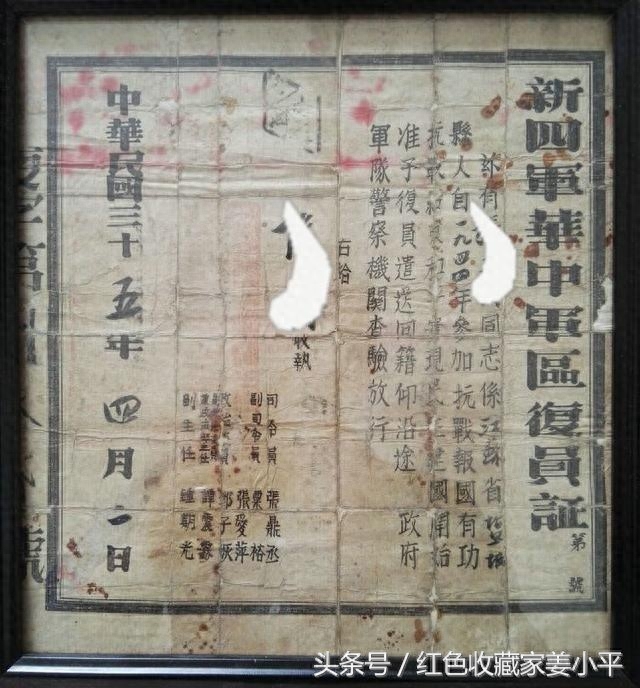 新四軍華中軍區復員証
第 號
茲有 同志係江蘇省
縣人自一九四四年參加抗戰報國有功
抗戰和 現民主建國開始
准予復員遣送回籍仰沿途 政府
軍隊警察機關查驗放行
右給
收執
司令員 張鼎丞
副司令員 粟裕
張愛萍
政治委員 鄧子恢
副政治委員 譚震霖
兼政治部主任
副主任 鍾期光
中華民國三十五年四月一日
復字第 號
头条号 / 红色收藏家姜小平